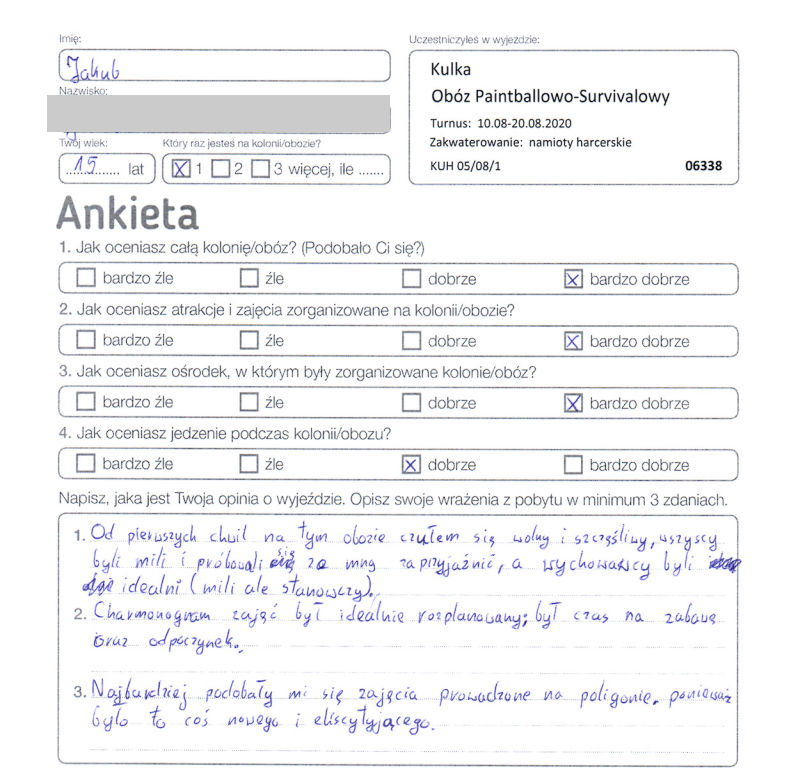 Imię:
Jakub
Nazwisko:
Twój wiek:
15 lat
Który raz jesteś na kolonii/obozie?
1 2 3 więcej, ile .......
Uczestniczyłeś w wyjeździe:
Kulka
Obóz Paintballowo-Survivalowy
Turnus: 10.08-20.08.2020
Zakwaterowanie: namioty harcerskie
KUH 05/08/1 06338
Ankieta
1. Jak oceniasz całą kolonię/obóz? (Podobało Ci się?)
bardzo źle źle dobrze bardzo dobrze
2. Jak oceniasz atrakcje i zajęcia zorganizowane na kolonii/obozie?
bardzo źle źle dobrze bardzo dobrze
3. Jak oceniasz ośrodek, w którym były zorganizowane kolonie/obóz?
bardzo źle źle dobrze bardzo dobrze
4. Jak oceniasz jedzenie podczas kolonii/obozu?
bardzo źle źle dobrze bardzo dobrze
Napisz, jaka jest Twoja opinia o wyjeździe. Opisz swoje wrażenia z pobytu w minimum 3 zdaniach.
1. Od pierwszych chwil na tym obozie czułem się wolny i szczęśliwy, wszyscy
byli mili i próbowali się ze mną zaprzyjaźnić, a wychowawcy byli
idealni (mili ale stanowczy).
2. Charmonogram zajęć był idealnie rozplanowany; był czas na zabawę
oraz odpoczynek.
3. Najbardziej podobały mi się zajęcia prowadzone na poligonie, ponieważ
było to coś nowego i ekscytującego.